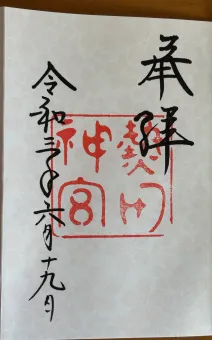 奉拜
熱田
神宮
令和三年六月十九日